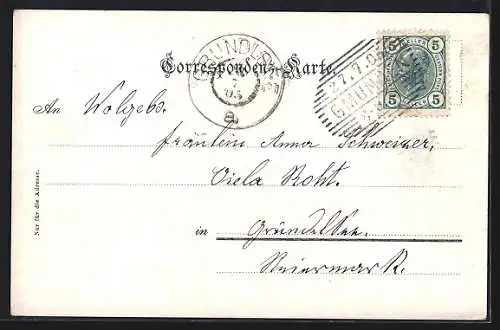 Correspondenz-Karte.
GRUNDLSEE
27.7.05
GMUNDEN
5 HELLER 5
5 5
An Wolgeb.
Fräulein Anna Schweizer,
Viola Roht.
in Grundelsee.
Steiermark.
Nur für die Adresse.